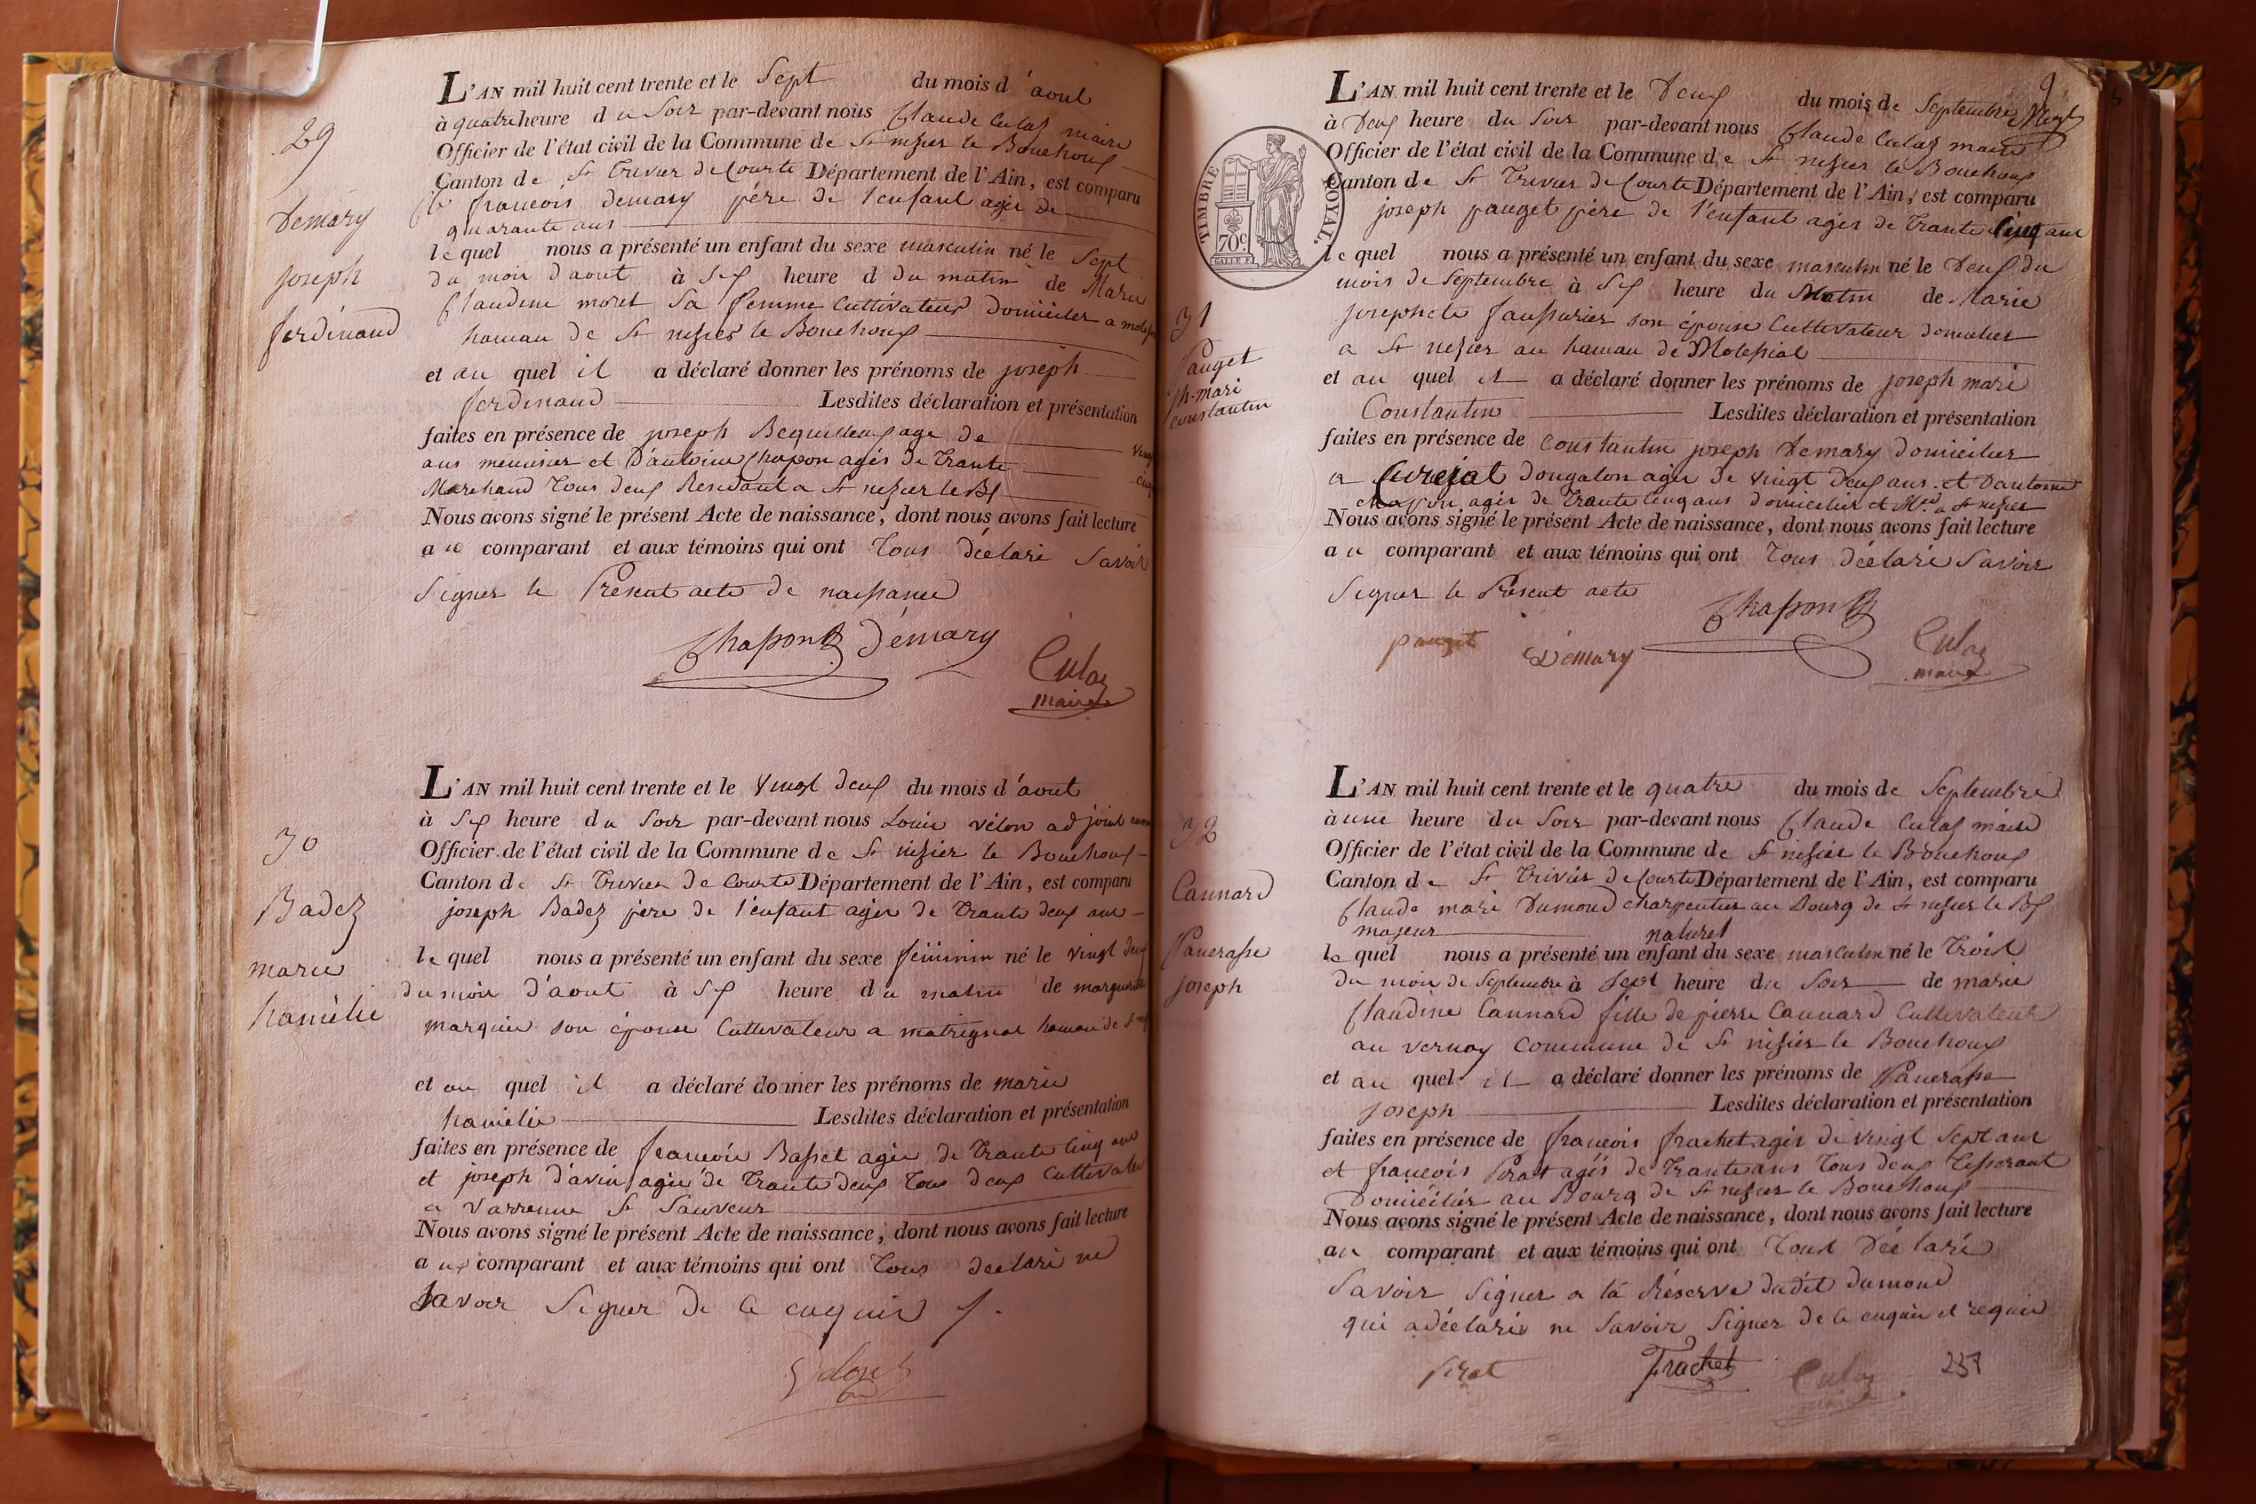 29
Demary
joseph
ferdinand
L'AN mil huit cent trente et le Sept du mois d'aout
à quatre heure du Soir par-devant nous Claude Culas maire
Officier de l'état civil de la Commune de St nizier le Bouchoux
Canton de St Trivier de Courte Département de l'Ain, est comparu
francois demary père de l'enfant agée de
quarante ans
lequel nous a présenté un enfant du sexe masculin né le Sept
du mois d'aout à Six heure d du matin de Marie
Claudine moret Sa femme Cultivateur Domicilier a
hameau de St nizier le Bouchoux
et au quel il a déclaré donner les prénoms de joseph
ferdinand Lesdites déclaration et présentation
faites en présence de joseph age de
ans menuisier et D'antoine Chapon agés de Trante
Marchand Tous deux Residant a St nizier le Bx
Nous avons signé le présent Acte de naissance, dont nous avons fait lecture
au comparant et aux témoins qui ont Tous déclaré Savoir
Signer le Présent acte de naissance
Chapon Démary
Culas
maire
30
Badez
marie
hamélie
L'AN mil huit cent trente et le Vingt deux du mois d'aout
à Six heure du Soir par-devant nous Louis vélon adjoint
Officier de l'état civil de la Commune de St nizier le Bouchoux
Canton de St Trivier de Courte Département de l'Ain, est comparu
joseph Badez père de l'enfant agée de Trante deux ans
lequel nous a présenté un enfant du sexe féminin né le vingt deux
du mois d'aout à Six heure du matin de marguerite
marquis son épouse Cultivateur a matrignat hameau de St
et au quel il a déclaré donner les prénoms de marie
hamélie Lesdites déclaration et présentation
faites en présence de francois Basset agée de Trante Cinq ans
et joseph d'avin agée de Trante deux Tous deux Cultivateur
a Varenne St Sauveur
Nous avons signé le présent Acte de naissance, dont nous avons fait lecture
aux comparant et aux témoins qui ont Tous déclaré ne
Savoir Signer de ce enquis
9
TIMBRE ROYAL.
70c
31
Pauget
jh-mari
constantin
L'AN mil huit cent trente et le Deux du mois de Septembre
à Deux heure du Soir par-devant nous Claude Culas maire
Officier de l'état civil de la Commune de St nizier le Bouchoux
Canton de St Trivier de Courte Département de l'Ain, est comparu
joseph pauget père de l'enfant agés de Trante Cinq ans
lequel nous a présenté un enfant du sexe masculin né le Deux du
mois de Septembre à Six heure du Matin de Marie
josephete faussurier son épouse Cultivateur domicilier
a St nizier au hameau de Molessiat
et au quel il a déclaré donner les prénoms de joseph mari
Constantin Lesdites déclaration et présentation
faites en présence de Constantin joseph Demary domicilier
a Curciat dongalon agée de vingt Deux ans et D'antoine
chapon agés de Trante Cinq ans domicilier et Md a St nizier
Nous avons signé le présent Acte de naissance, dont nous avons fait lecture
au comparant et aux témoins qui ont Tous déclaré Savoir
Signer le Présent acte
Chapon
pauget Démary Culas
maire
32
Cannard
Pancrasse
joseph
L'AN mil huit cent trente et le quatre du mois de Septembre
à une heure du Soir par-devant nous Claude Culas maire
Officier de l'état civil de la Commune de St nizier le Bouchoux
Canton de St Trivier de Courte Département de l'Ain, est comparu
Claude mari Dumond charpentier au Bourg de St nizier le Bx
majeur naturel
lequel nous a présenté un enfant du sexe masculin né le Trois
du mois de Septembre à Sept heure du Soir de marie
Claudine Cannard fille de pierre Cannard Cultivateur
au vernay Commune de St nizier le Bouchoux
et au quel il a déclaré donner les prénoms de Pancrasse
joseph Lesdites déclaration et présentation
faites en présence de francois frachet agés de vingt Sept ans
et francois Pirat agés de Trante ans Tous deux Tisserant
Domiciliés au Bourg de St nizier le Bouchoux
Nous avons signé le présent Acte de naissance, dont nous avons fait lecture
au comparant et aux témoins qui ont Tous Déclaré
Savoir Signer a la Réserve dudit dumond
qui a déclaré ne Savoir Signer de ce enquis et requis
Pirat Frachet Culas
maire
237